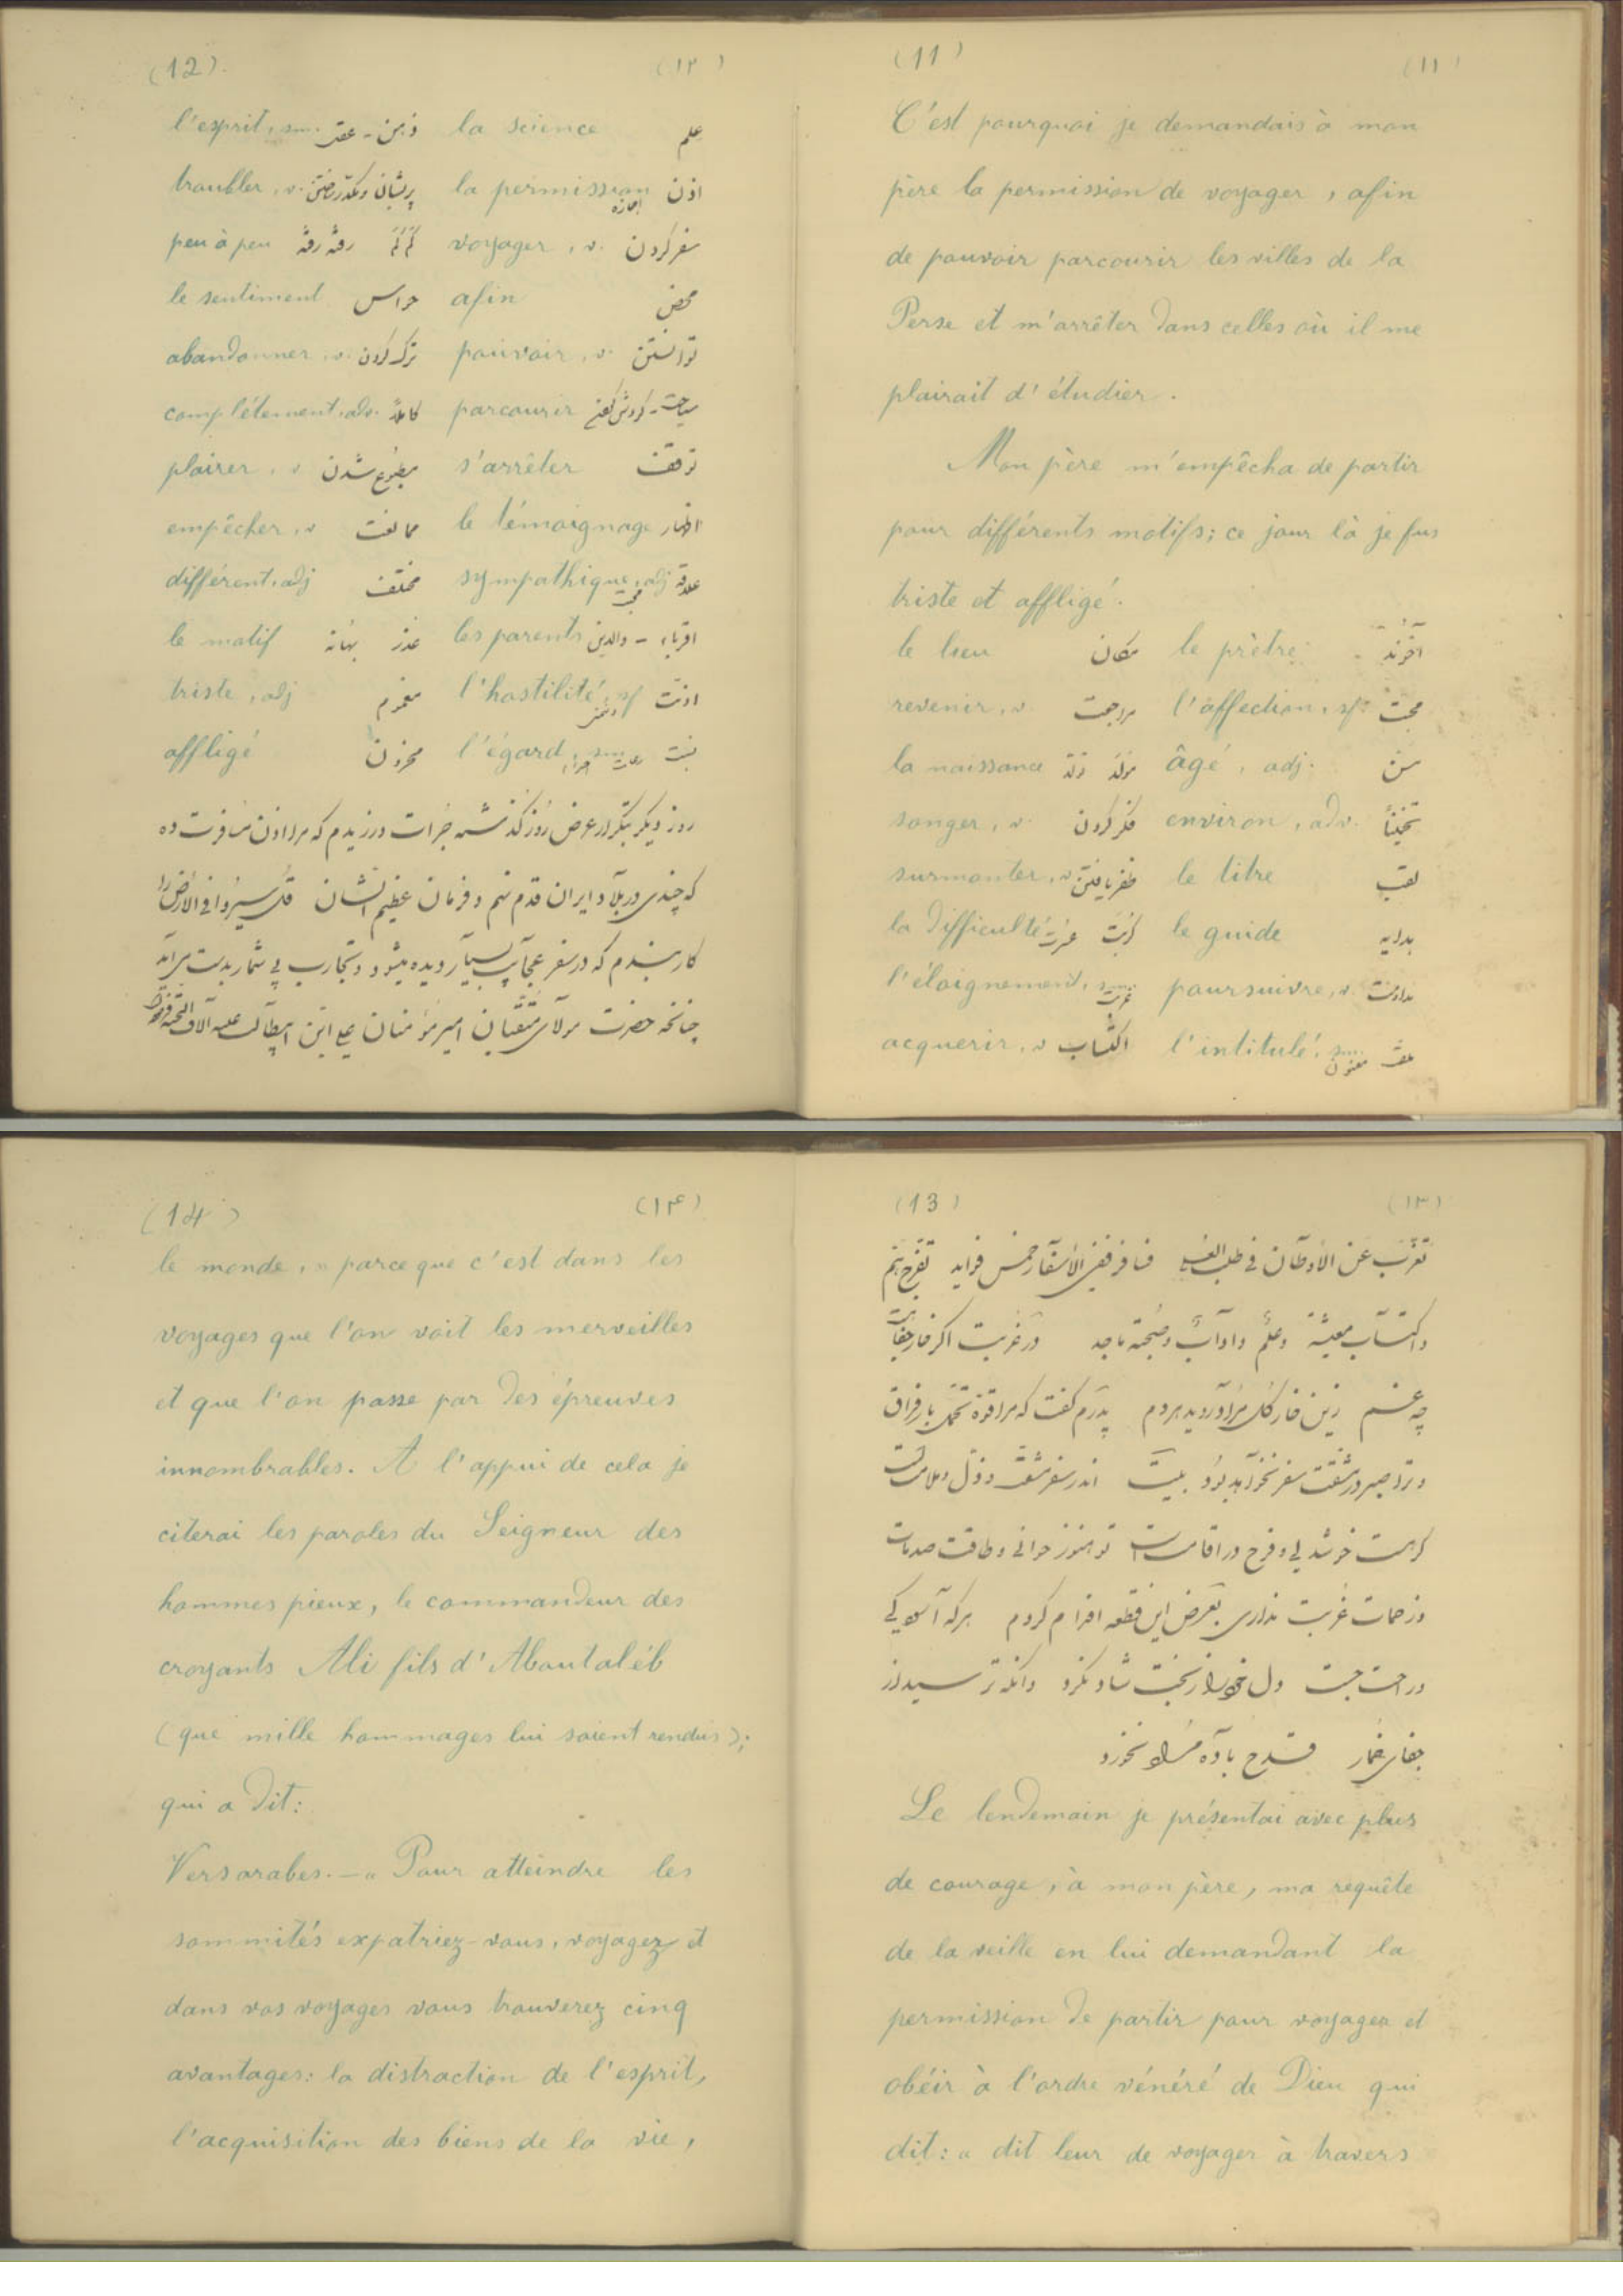 (11) (۱۱)
C'est pourquoi je demandais à mon
père la permission de voyager, afin
de pouvoir parcourir les villes de la
Perse et m'arrêter dans celles où il me
plairait d'étudier.
Mon père m'empêcha de partir
pour différents motifs; ce jour là je fus
triste et affligé.
le prètre آخوند le lieu مکان
l'affection, sf: محبت revenir, v. مراجعت
âgé, adj. سن la naissance مولد
environ, adv. تخمیناً songer, v. فکر کردن
le titre لقب surmonter, v. ظفر یافتن
le guide la difficulté کربت
poursuivre, v. مداومت l'éloignement, غربت
l'intitulé, معنون acquerir, v اکتساب
(12) (۱۲)
la science علم l'esprit, sm. ذهن - عقل
la permission اذن اجازه troubler, v. پریشان و مکدر ساختن
voyager, v. سفر کردن peu à peu کم کم رفته رفته
afin محض le sentiment حواس
pouvoir, v. توانستن abandonner, v. ترک کردن
parcourir سیاحت - گردش complétement, adv. کاملاً
s'arrêter توقف plairer, v مطبوع شدن
le témoignage اظهار empêcher, v ممانعت
sympathique, adj علاقه différent, adj مختلف
les parents اقرباء - والدین le motif عذر بهانه
l'hostilité, sf اذیت دشمنی triste, adj مغموم
l'égard, sm. نسبت affligé محزون
روز دیگر بتکرار عرض روز گذشته جرات ورزیدم که مرا اذن مسافرت ده
که چندی در بلاد ایران قدم نهم و فرمان عظیم الشان قل سیروا فی الارض را
کار بندم که در سفر عجایب بسیار دیده میشود و تجارب بی شمار بدست میآید
چنانچه حضرت مولای متقیان امیر مؤمنان علی ابن ابیطالب علیه آلاف التحیة
(13) (۱۳)
تغرب عن الاوطان فی طلب العلی فسافر ففی الاسفار خمس فواید تفرج هم
و اکتساب معیشة و علم و آداب و صحبة ماجد در غربت اگر خار جفا
چه غم زین خار گل مراد روید هر دم پدرم گفت که مرا قوة تحمل بار فراق
و ترا صبر در مشقت سفر نخواهد بود بیت اندر سفر مشقت و ذل و ملامت است
گر هست خوشدلی و فرح در اقامت است تو هنوز جوانی و طاقت صدمات
و زحمات غربت نداری بعرض این قطعه اقدام کردم هر که آسودگی
و راحت جست دل خود را ز بخت شاد نکرد وانکه ترسید از
جفای خمار قدح باده مراد نخورد
Le lendemain je présentai avec plus
de courage, à mon père, ma requête
de la veille en lui demandant la
permission de partir pour voyager et
obéir à l'ordre vénéré de Dieu qui
dit: « dit leur de voyager à travers
(14) (۱۴)
le monde, » parceque c'est dans les
voyages que l'on voit les merveilles
et que l'on passe par des épreuves
innombrables. A l'appui de cela je
citerai les paroles du Seigneur des
hommes pieux, le commandeur des
croyants Ali fils d'Aboutaléb
(que mille hommages lui soient rendus);
qui a dit:
Vers arabes. — « Pour atteindre les
sommités expatriez-vous, voyagez et
dans vos voyages vous trouverez cinq
avantages: la distraction de l'esprit,
l'acquisition des biens de la vie,